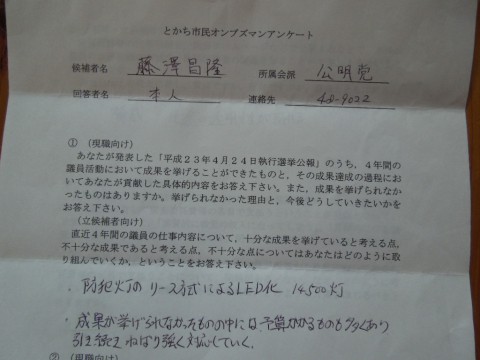 とかち市民オンブズマンアンケート
候補者名 藤澤昌隆 所属会派 公明党
回答者名 本人 連絡先 48-9022
① (現職向け)
あなたが発表した「平成２３年４月２４日執行選挙公報」のうち、４年間の
議員活動において成果を挙げることができたものと、その成果達成の過程にお
いてあなたが貢献した具体的内容をお答え下さい。また、成果を挙げられなか
ったものはありますか。挙げられなかった理由と、今後どうしていきたいかを
お答え下さい。
(立候補者向け)
直近４年間の議員の仕事内容について、十分な成果を挙げていると考える点、
不十分な成果であると考える点、不十分な点についてはあなたはどのように取
り組んでいくか、ということをお答え下さい。
・防犯灯のリース方式によるLED化 14,500灯
・成果が挙げられなかったものの中には予算がかかるものも多くあり
引き続きねばり強く対応していく。
② (現職向け)